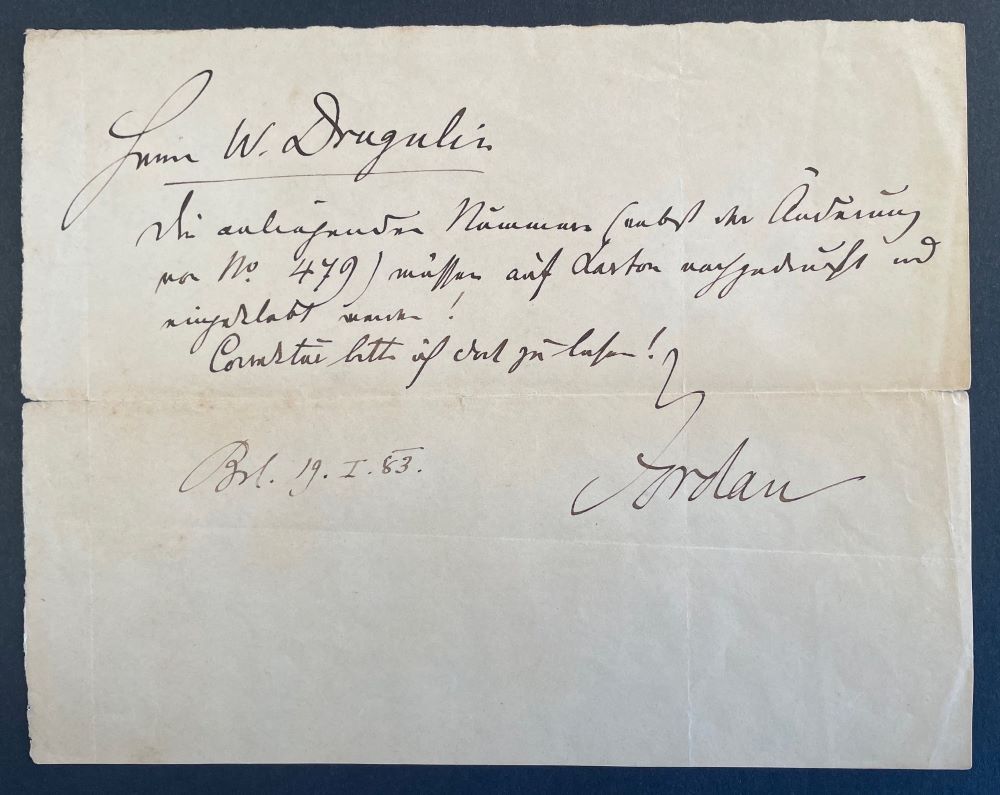 Herrn W. Drugulin
Die anliegenden Nummern (nebst der Änderung
von No. 479) müssen auf Karton nachgedruckt und
eingeklebt werden!
Correktur bitte ich dort zu lesen!
Brl. 19. I. 83.
Jordan